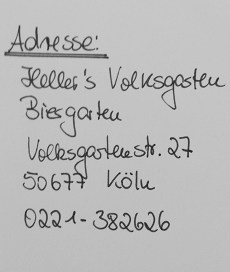 Adresse:
Heller's Volksgarten
Biergarten
Volksgartenstr. 27
50677 Köln
0221-382626